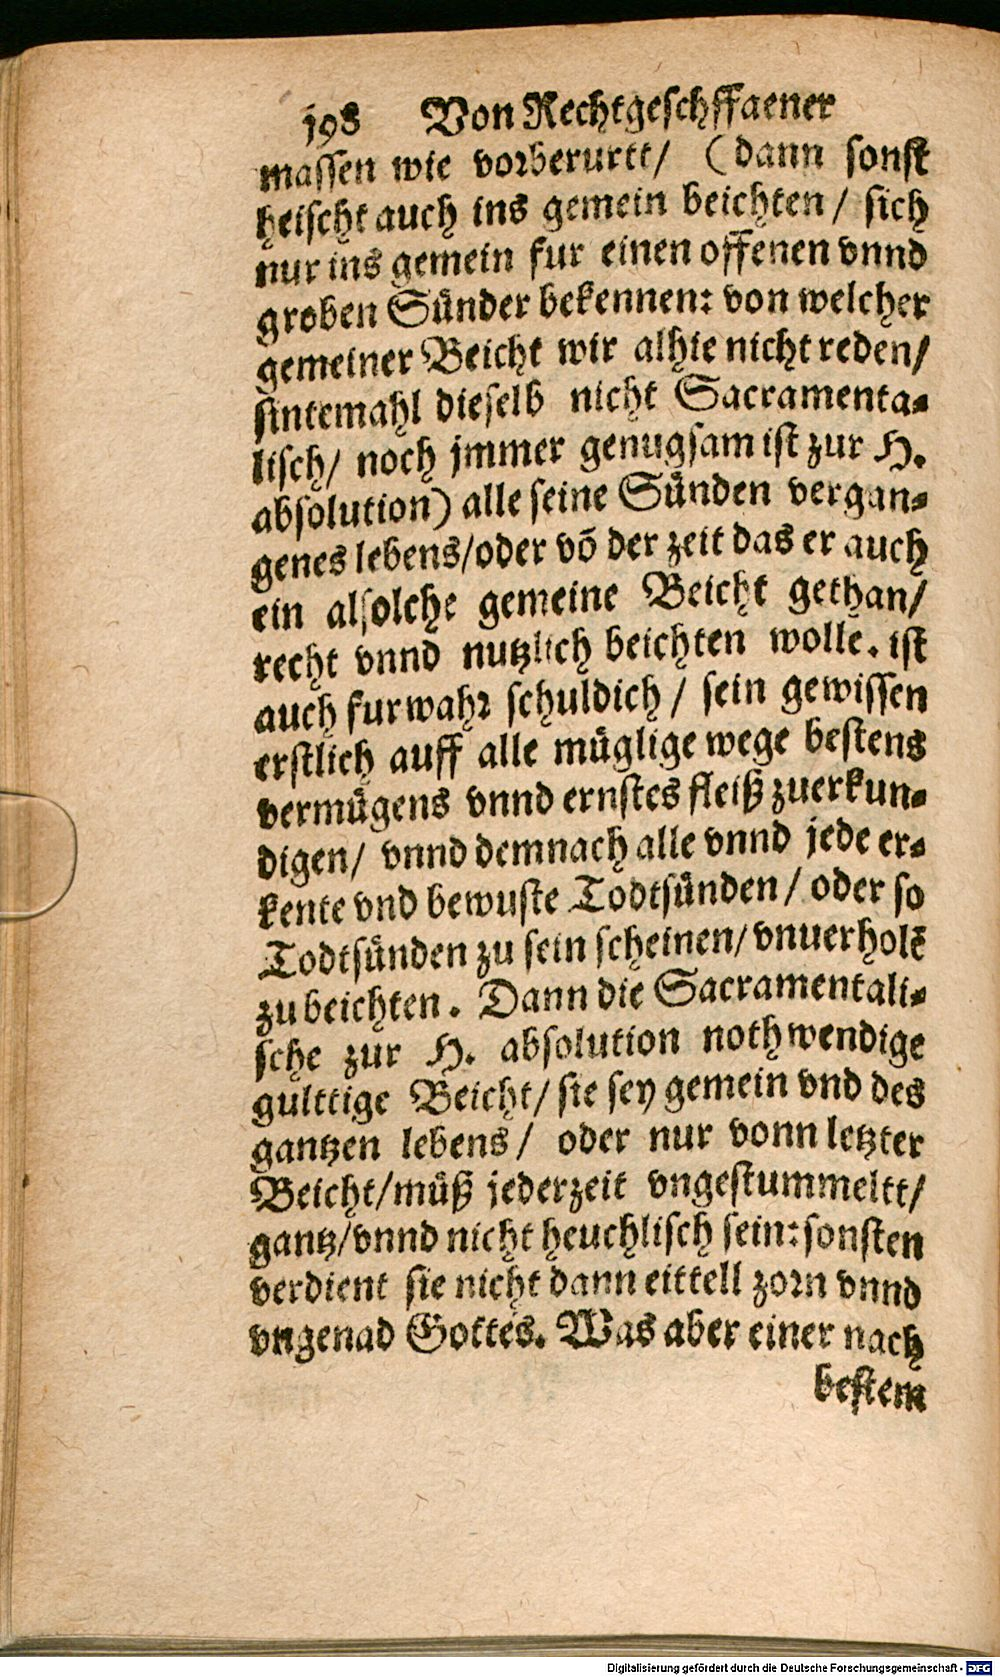 198 Von Rechtgeschffaener
massen wie vorberurtt/ (dann sonst
heischt auch ins gemein beichten/ sich
nur ins gemein fur einen offenen vnnd
groben Sünder bekennen: von welcher
gemeiner Beicht wir alhie nicht reden/
sintemahl dieselb nicht Sacramenta-
lisch/ noch jmmer genugsam ist zur H.
absolution) alle seine Sünden vergan-
genes lebens/oder võ der zeit das er auch
ein alsolche gemeine Beicht gethan/
recht vnnd nutzlich beichten wolle. ist
auch furwahr schuldich/ sein gewissen
erstlich auff alle müglige wege bestens
vermügens vnnd ernstes fleiß zuerkun-
digen/ vnnd demnach alle vnnd jede er-
kente vnd bewuste Todtsünden/ oder so
Todtsünden zu sein scheinen/ vnuerholẽ
zu beichten. Dann die Sacramentali-
sche zur H. absolution nothwendige
gulttige Beicht/ sie sey gemein vnd des
gantzen lebens/ oder nur vonn letzter
Beicht/müß jederzeit vngestummeltt/
gantz/vnnd nicht heuchlisch sein: sonsten
verdient sie nicht dann eittell zorn vnnd
vngenad Gottes. Was aber einer nach
bestem
Digitalisierung gefördert durch die Deutsche Forschungsgemeinschaft - DFG